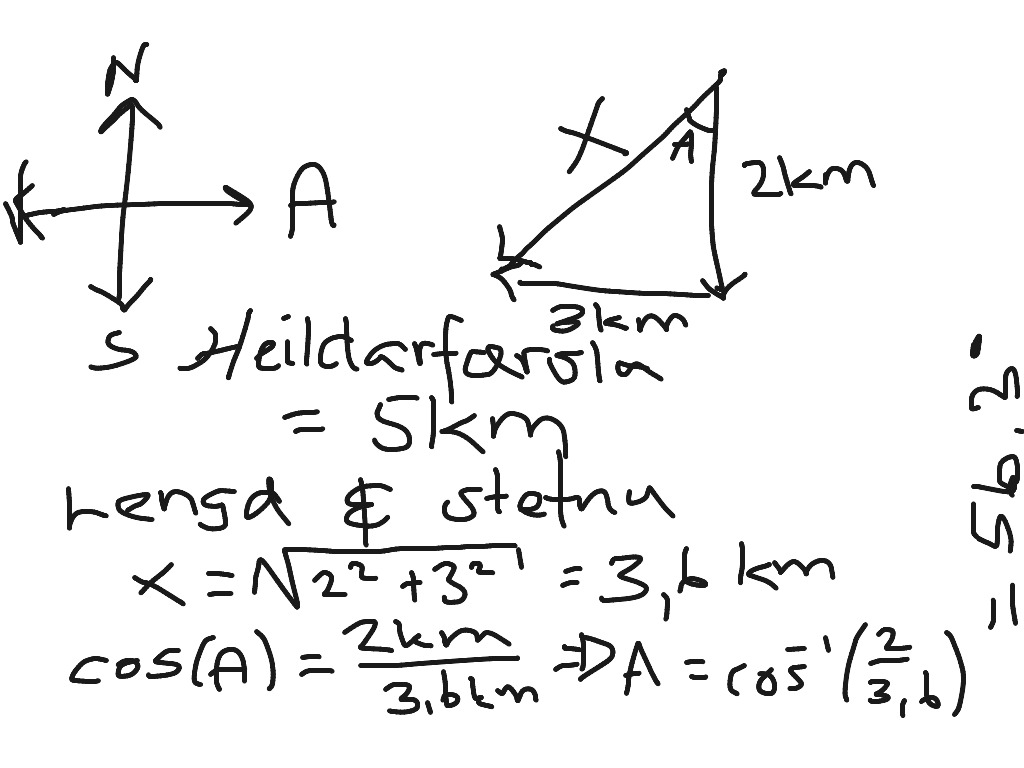 N
V
A
S
X
A
2km
3km
Heildarfærsla
= 5km
Lengd & stefnu
x = √2² + 3² = 3,6 km
cos(A) = 2km/3,6km ⇒ A = cos⁻¹(2/3,6)
= 56,3°